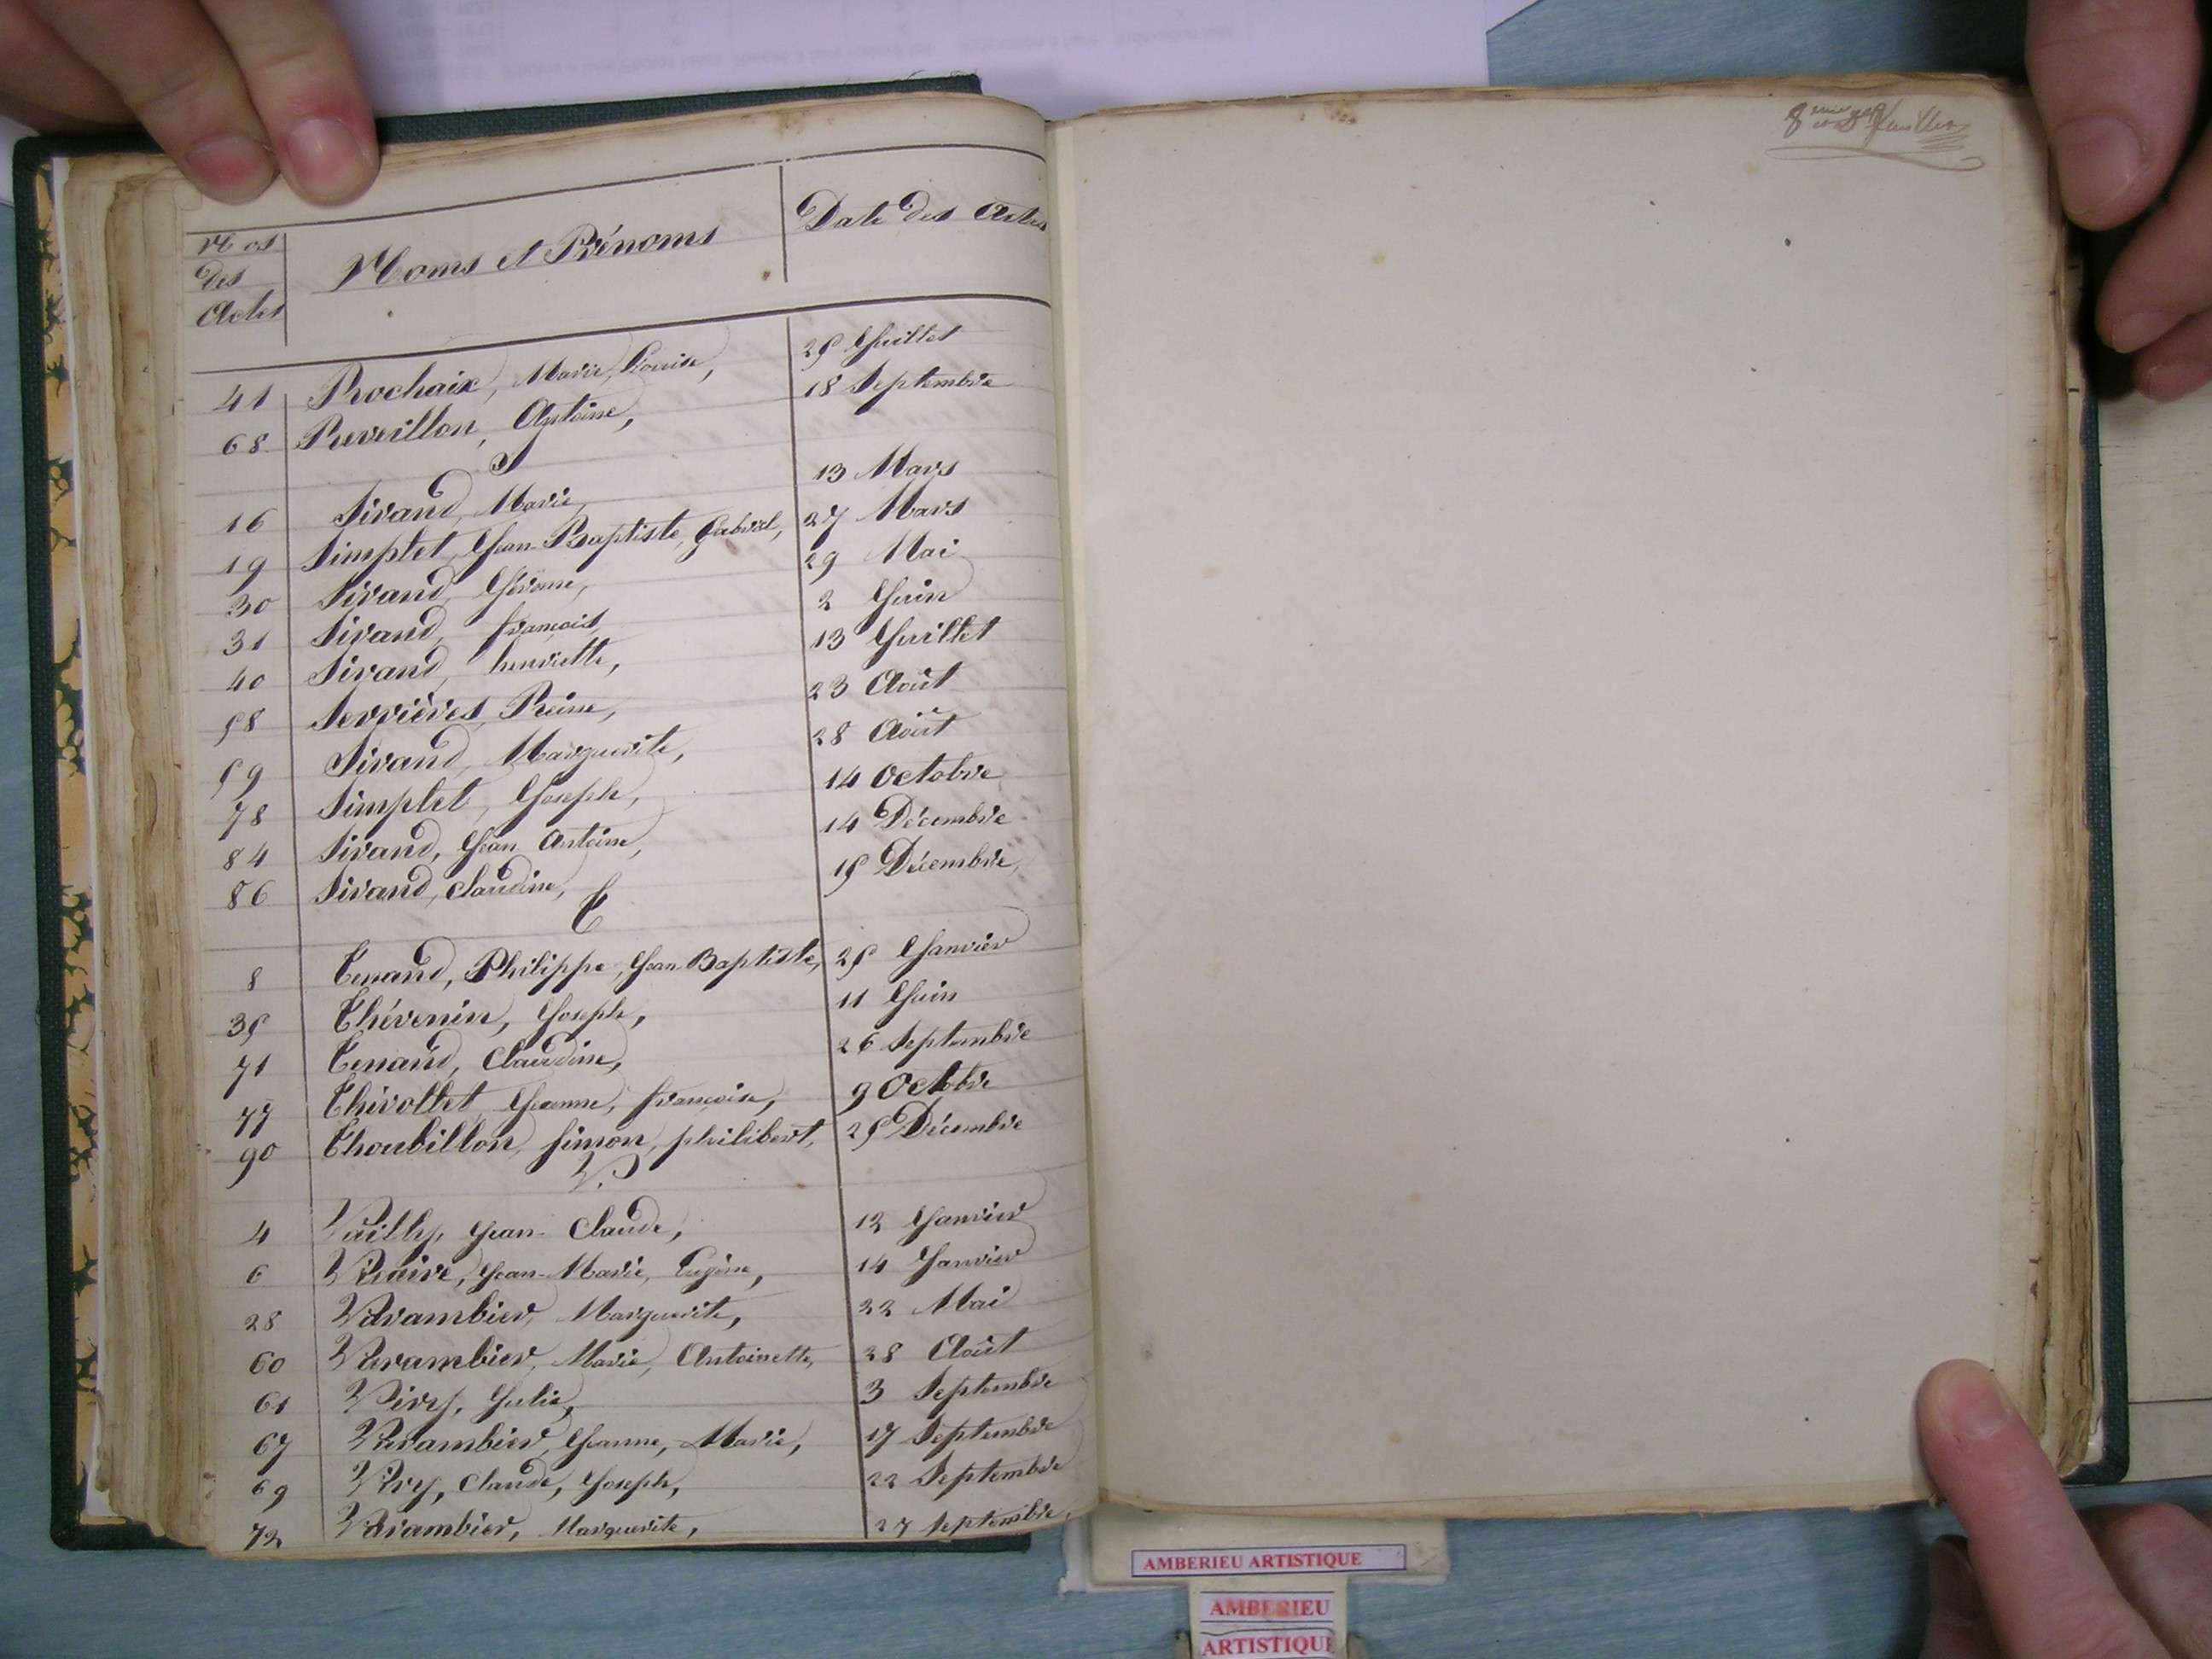 8eme et der feuillet
Nos des Actes Noms et Prénoms Date des Actes
41 Rochaix, Marie, Louise, 25 Juillet
68 Reveillon, Antoine, 18 Septembre
S
16 Sivand, Marie, 13 Mars
19 Simplet, Jean-Baptiste, Gabriel, 27 Mars
30 Sivand, Jérôme, 29 Mai
31 Sivand, françois, 2 Juin
40 Sivand, henriette, 13 Juillet
58 Serrières, Reine, 23 Août
59 Sivand, Marguerite, 28 Août
78 Simplet, Joseph, 14 Octobre
84 Sivand, Jean Antoine, 14 Décembre
86 Sivand, Claudine, 15 Décembre,
T
8 Tenand, Philippe, Jean-Baptiste, 25 Janvier
35 Thévenin, Joseph, 11 Juin
71 Tenand, Claudine, 26 Septembre
77 Thivollet, Jeanne, françoise, 9 Octobre
90 Thoubillon, Simon, philibert, 25 Décembre
V.
4 Vailly, Jean-Claude, 12 Janvier
6 Jean-Marie, Eugène, 14 Janvier
28 Varambier, Marguerite, 22 Mai
60 Varambier, Marie, Antoinette, 28 Août
61 Julie, 3 Septembre
67 Varambier, Jeanne, Marie, 17 Septembre
69 Claude, Joseph, 22 Septembre
72 Varambier, Marguerite, 27 Septembre,
AMBERIEU ARTISTIQUE
AMBERIEU
ARTISTIQUE